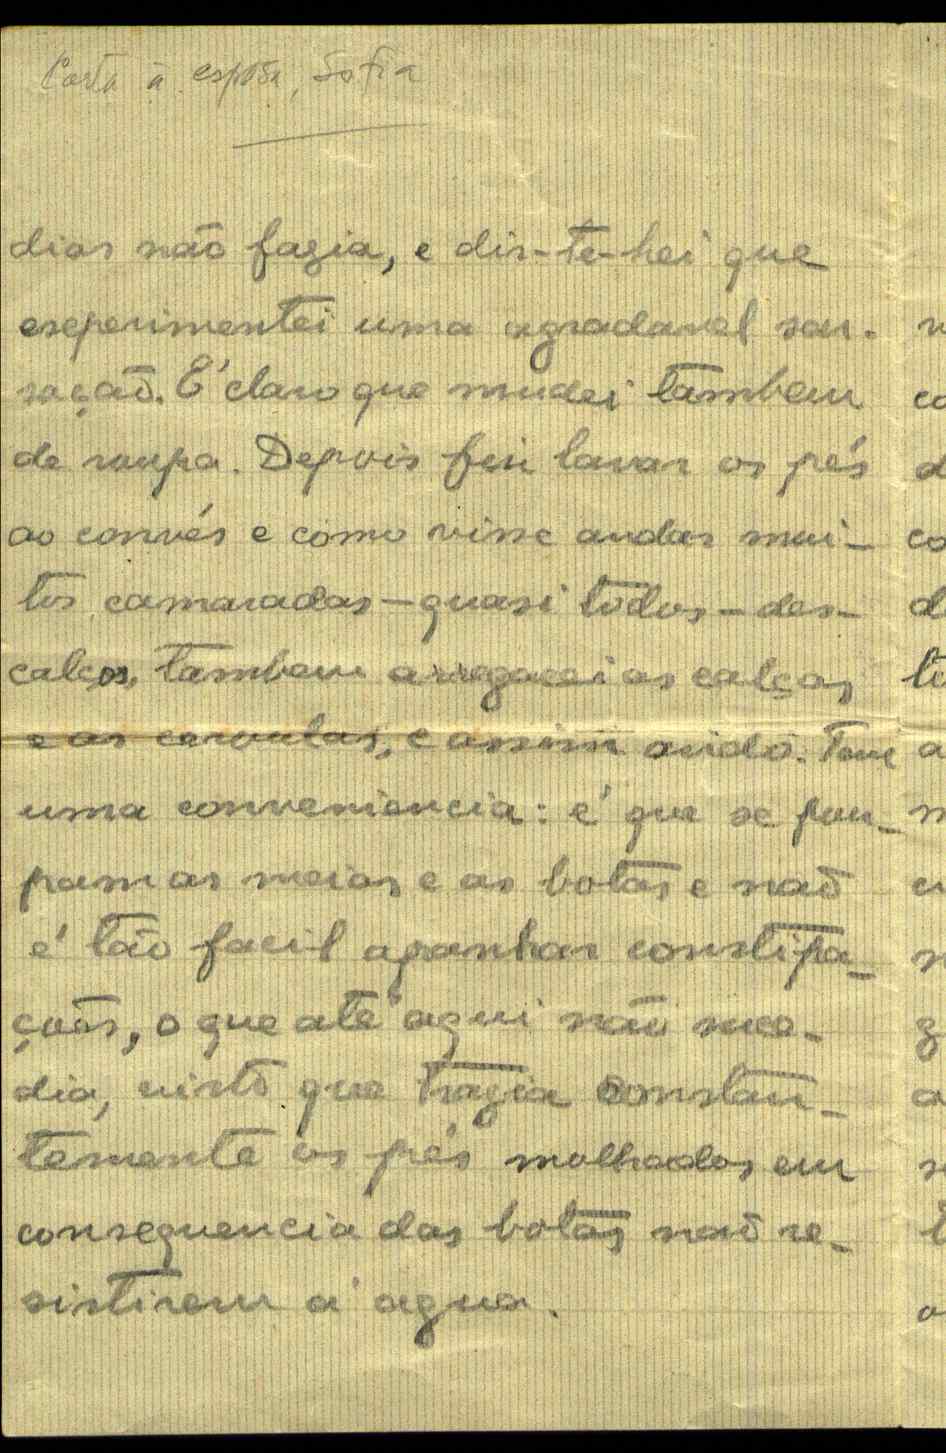 Carta à esposa, Sofia
dias não fazia, e dir-te-hei que
esperimentei uma agradavel sen-
sação. É claro que mudei tambem
de roupa. Depois fui lavar os pés
ao convés e como visse andar mui-
tos camaradas - quasi todos - des-
calços, tambem arregacei as calças
e as ceroulas, e assim ando. Tem
uma conveniencia: é que se pou-
pam as meias e as botas e não
é tão facil apanhar constipa-
ções, o que até aqui não suce-
dia, visto que trazia constan-
temente os pés molhados em
consequencia das botas não re-
sistirem á agua.